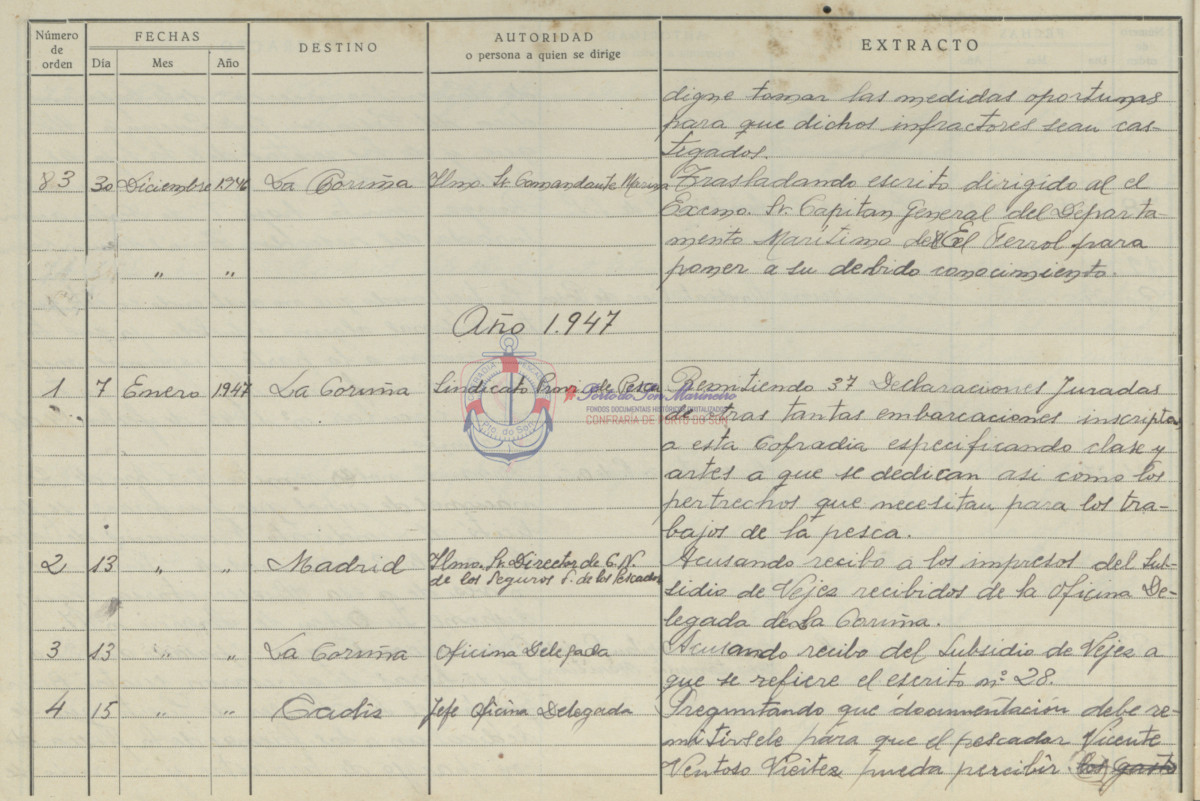 Número de orden
FECHAS
Día Mes Año
DESTINO
AUTORIDAD
o persona a quien se dirige
EXTRACTO
digne tomar las medidas oportunas
para que dichos infractores sean cas-
tigados.
83 30 Diciembre 1.946 La Coruña Ilmo. Sr. Comandante Marina Trasladando escrito dirigido al el
Excmo. Sr. Capitan General del Departa-
mento Marítimo de El Ferrol para
" " poner a su debido conocimiento.
Año 1.947
1 7 Enero 1947 La Coruña Sindicato Prov. de Pesca Remitiendo 37 Declaraciones Juradas
de otras tantas embarcaciones inscriptas
a esta Cofradia especificando clase y
artes a que se dedican asi como los
pertrechos que necesitan para los tra-
bajos de la pesca.
2 13 " " Madrid Ilmo. Sr. Director de C. N. Acusando recibo a los impresos del Sub-
de los Seguros S. de los Pescador sidio de Vejez recibidos de la Oficina De-
legada de La Coruña.
3 13 " " La Coruña Oficina Delegada Acusando recibo del Subsidio de Vejez a
que se refiere el escrito nº 28.
4 15 " " Cadiz Jefe Oficina Delegada Preguntando que documentación debe re-
mitirsele para que el pescador Vicente
Ventoso Vieitez pueda percibir los gasto
CONFRADIA PESCADORES
Pto. do Son
Porto do Son Marineiro
FONDOS DOCUMENTAIS HISTÓRICOS DIGITALIZADOS
CONFRARÍA DE PORTO DO SON